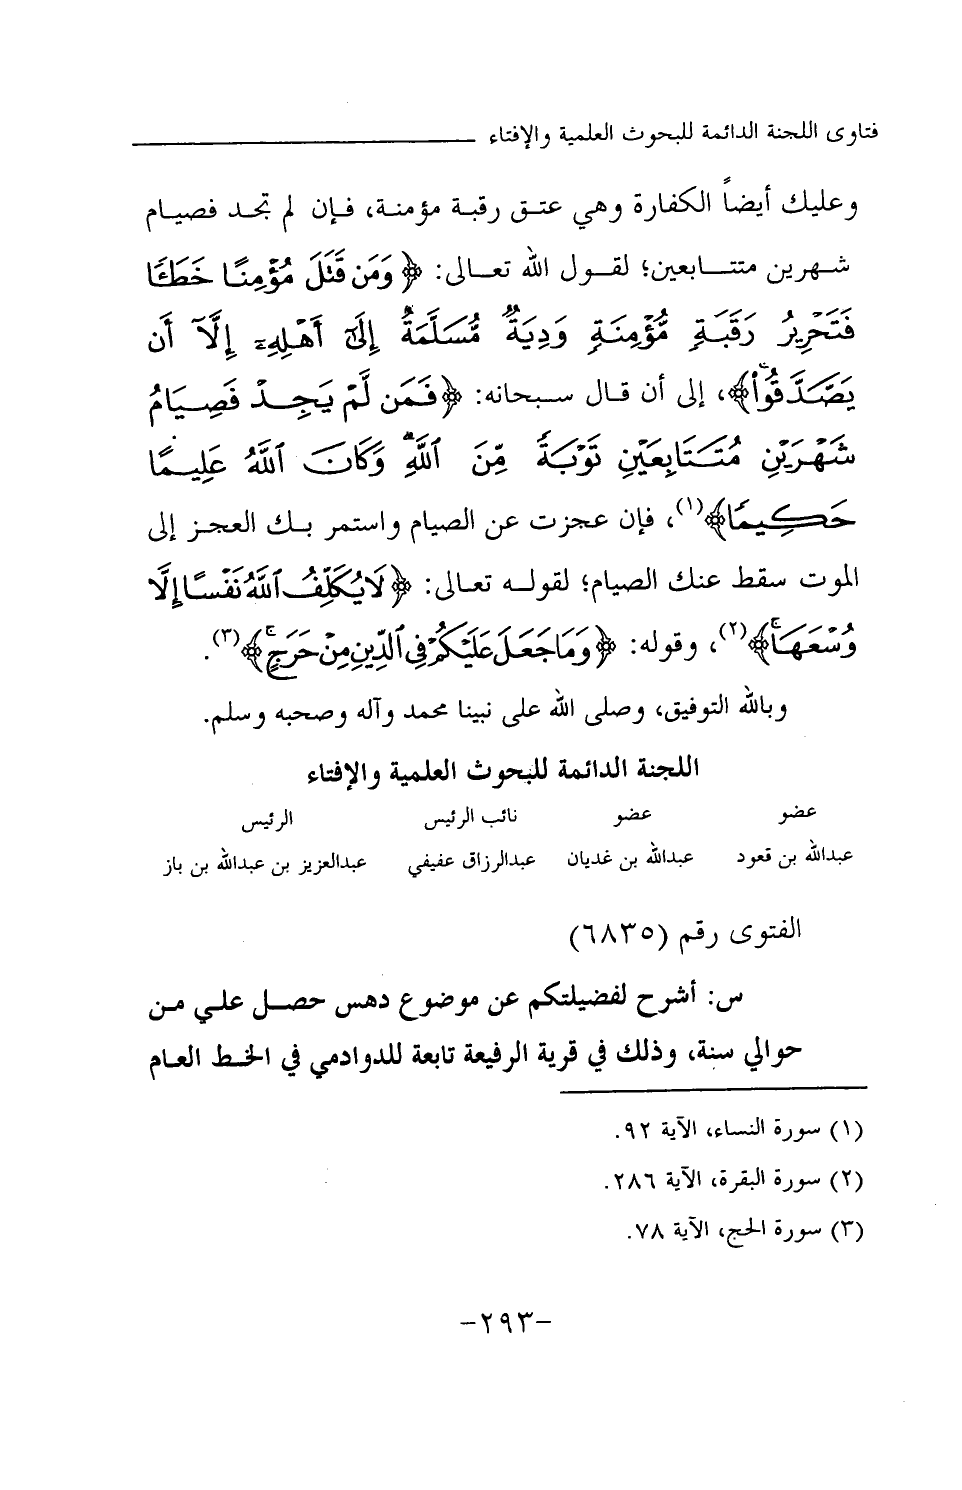 فتاوى اللجنة الدائمة للبحوث العلمية والإفتاء
وعليك أيضاً الكفارة وهي عتق رقبة مؤمنة، فإن لم تجد فصيام
شهرين متتابعين؛ لقول الله تعالى: ﴿وَمَن قَتَلَ مُؤْمِنًا خَطَـًٔا
فَتَحْرِيرُ رَقَبَةٍ مُّؤْمِنَةٍ وَدِيَةٌ مُّسَلَّمَةٌ إِلَىٰٓ أَهْلِهِۦٓ إِلَّآ أَن
يَصَّدَّقُوا۟ۚ﴾، إلى أن قال سبحانه: ﴿فَمَن لَّمْ يَجِدْ فَصِيَامُ
شَهْرَيْنِ مُتَتَابِعَيْنِ تَوْبَةً مِّنَ ٱللَّهِۗ وَكَانَ ٱللَّهُ عَلِيمًا
حَكِيمًا﴾(١)، فإن عجزت عن الصيام واستمر بك العجز إلى
الموت سقط عنك الصيام؛ لقوله تعالى: ﴿لَا يُكَلِّفُ ٱللَّهُ نَفْسًا إِلَّا
وُسْعَهَاۚ﴾(٢)، وقوله: ﴿وَمَا جَعَلَ عَلَيْكُمْ فِى ٱلدِّينِ مِنْ حَرَجٍۚ﴾(٣).
وبالله التوفيق، وصلى الله على نبينا محمد وآله وصحبه وسلم.
اللجنة الدائمة للبحوث العلمية والإفتاء
عضو عضو نائب الرئيس الرئيس
عبدالله بن قعود عبدالله بن غديان عبدالرزاق عفيفي عبدالعزيز بن عبدالله بن باز
الفتوى رقم (٦٨٣٥)
س: أشرح لفضيلتكم عن موضوع دهس حصل علي من
حوالي سنة، وذلك في قرية الرفيعة تابعة للدوادمي في الخط العام
(١) سورة النساء، الآية ٩٢.
(٢) سورة البقرة، الآية ٢٨٦.
(٣) سورة الحج، الآية ٧٨.
-٢٩٣-